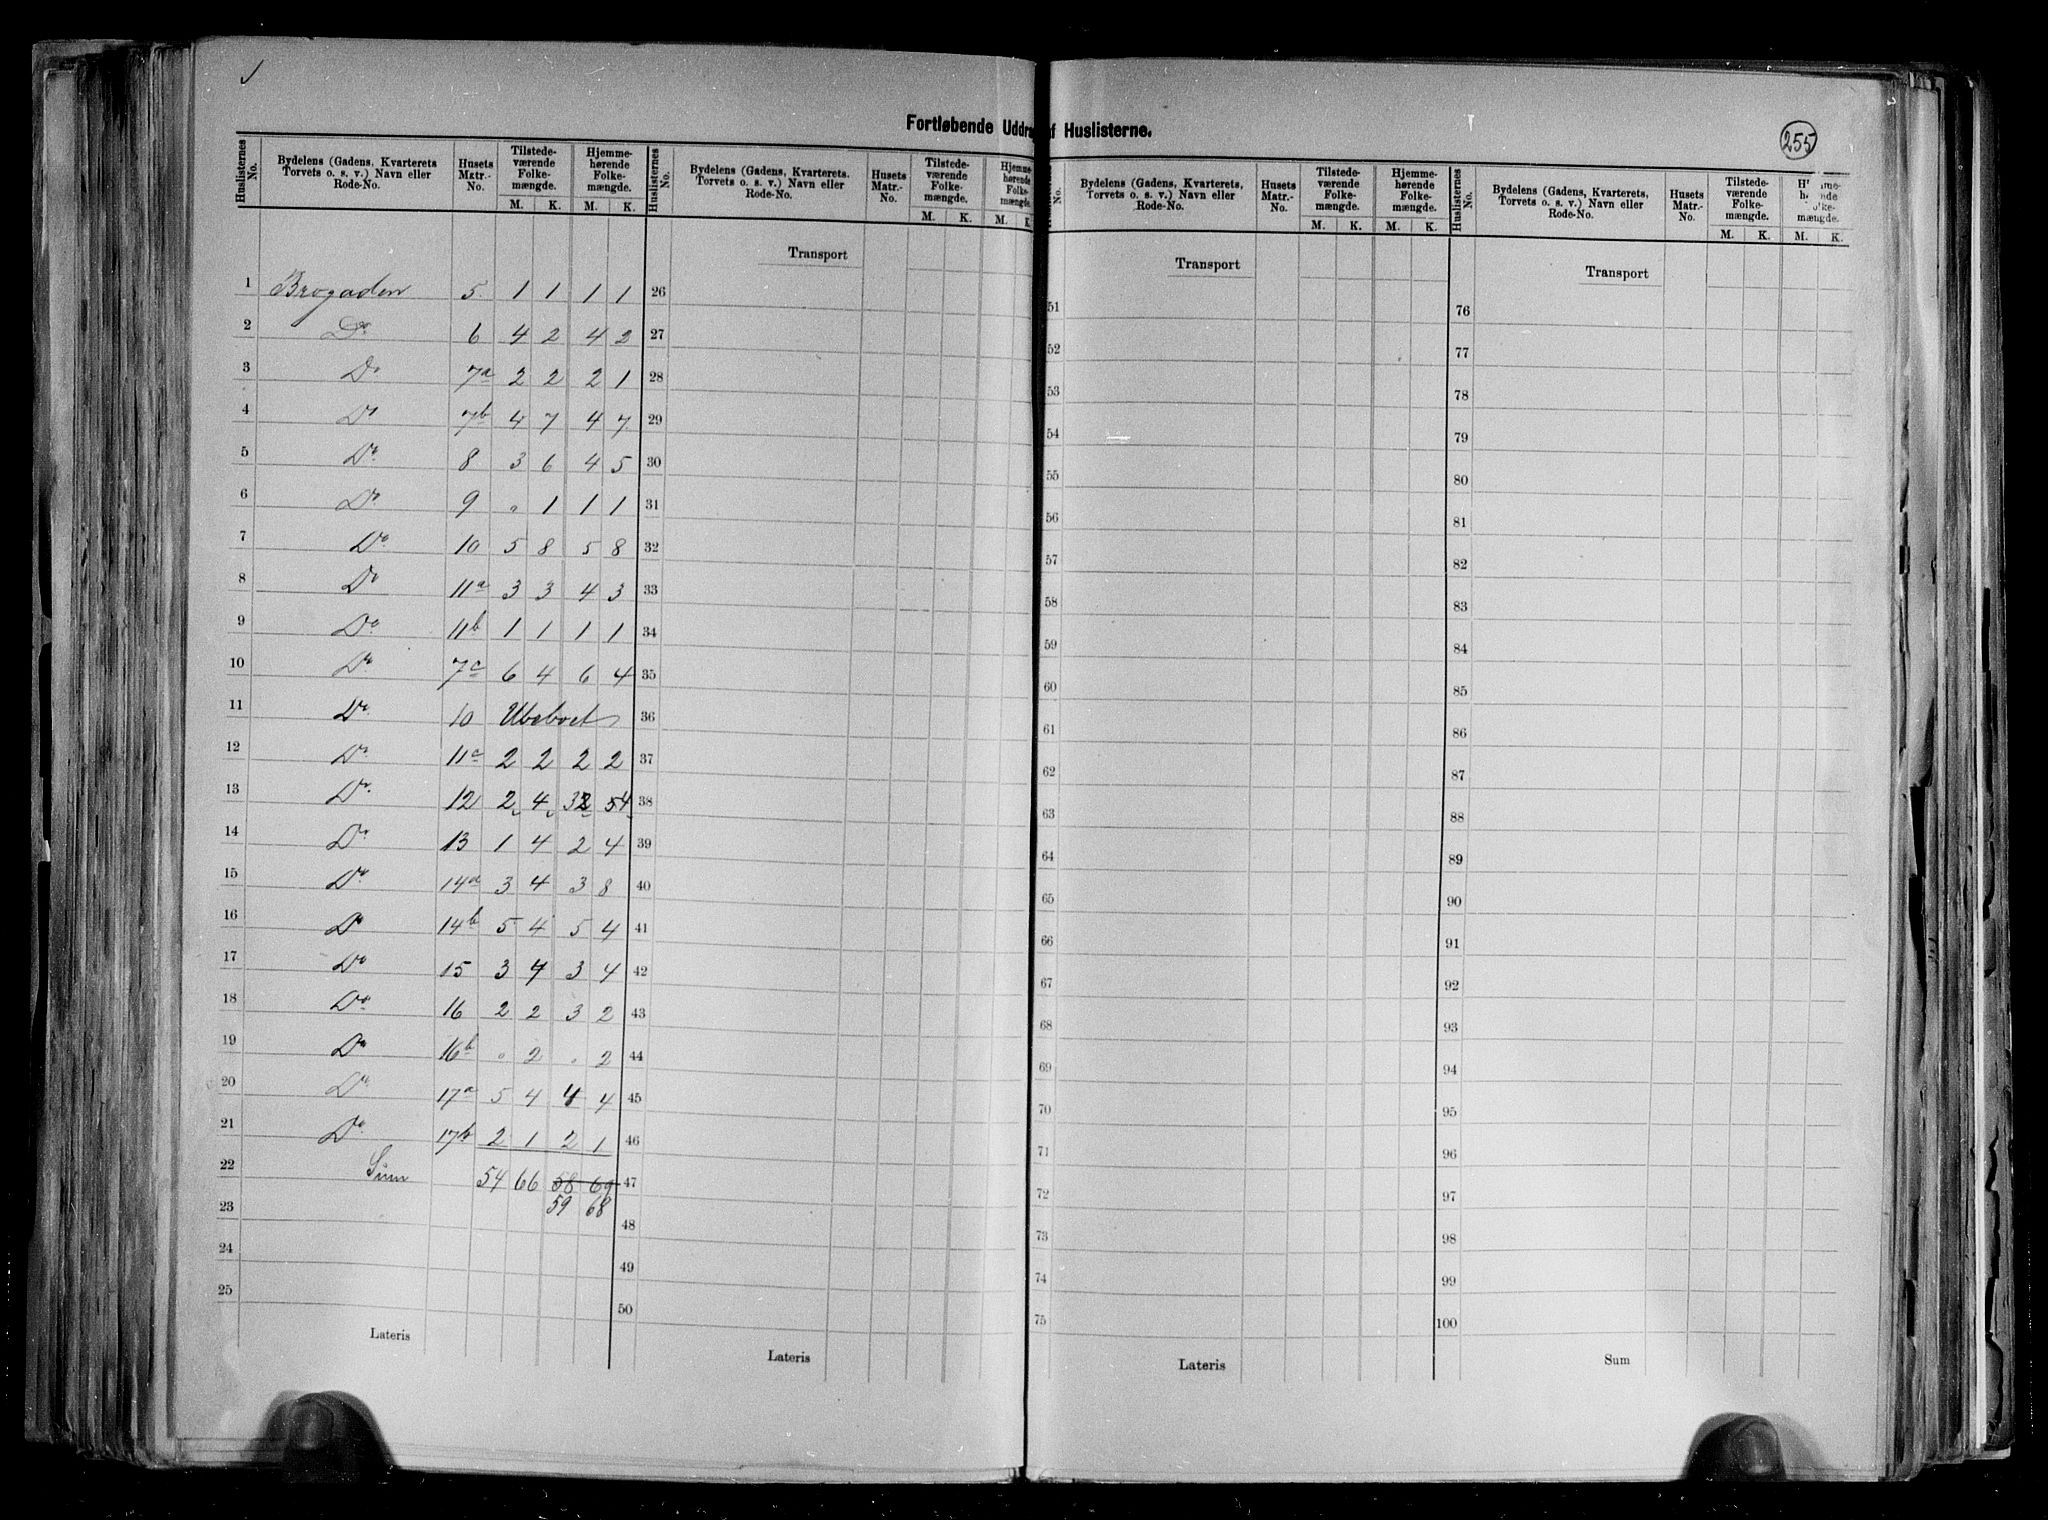 255
Fortløbende Uddra f Huslisterne.
Huslisternes No. | Bydelens (Gadens, Kvarterets Torvets o. s. v.) Navn eller Rode-No. | Husets Matr.-No. | Tilstedeværende Folkemængde. M. K. | Hjemmehørende Folkemængde. M. K.
1 Brogaden 5. 1 1 1 1
2 Do 6 4 2 4 2
3 Do 7a 2 2 2 1
4 Do 7b 4 7 4 7
5 Do 8 3 6 4 5
6 Do 9 " 1 1 1
7 Do 10 5 8 5 8
8 Do 11a 3 3 4 3
9 Do 11b 1 1 1 1
10 Do 7c 6 4 6 4
11 Do 10 Ubeboet
12 Do 11c 2 2 2 2
13 Do 12 2 4 32 54
14 Do 13 1 4 2 4
15 Do 14a 3 4 3 8
16 Do 14b 5 4 5 4
17 Do 15 3 4 3 4
18 Do 16 2 2 3 2
19 Do 16b " 2 " 2
20 Do 17a 5 4 4 4
21 Do 17b 2 1 2 1
22 Sum 54 66 58 69
23 59 68
24
25
Lateris
Huslisternes No. | Bydelens (Gadens, Kvarterets. Torvets o. s. v.) Navn eller Rode-No. | Husets Matr.-No. | Tilstedeværende Folkemængde. M. K. | Hjemmehørende Folkemængde. M. K.
Transport
26
27
28
29
30
31
32
33
34
35
36
37
38
39
40
41
42
43
44
45
46
47
48
49
50
Lateris
No. | Bydelens (Gadens, Kvarterets, Torvets o. s. v.) Navn eller Rode-No. | Husets Matr.-No. | Tilstedeværende Folkemængde. M. K. | Hjemmehørende Folkemængde. M. K.
Transport
51
52
53
54
55
56
57
58
59
60
61
62
63
64
65
66
67
68
69
70
71
72
73
74
75
Lateris
Huslisternes No. | Bydelens (Gadens, Kvarterets, Torvets o. s. v.) Navn eller Rode-No. | Husets Matr.-No. | Tilstedeværende Folkemængde. M. K. | M. K.
Transport
76
77
78
79
80
81
82
83
84
85
86
87
88
89
90
91
92
93
94
95
96
97
98
99
100
Sum